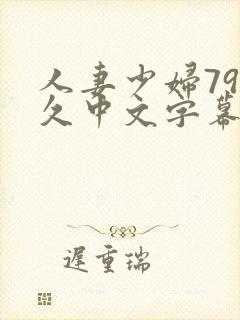 人妻少婦79
久中文字幕
遲重瑞